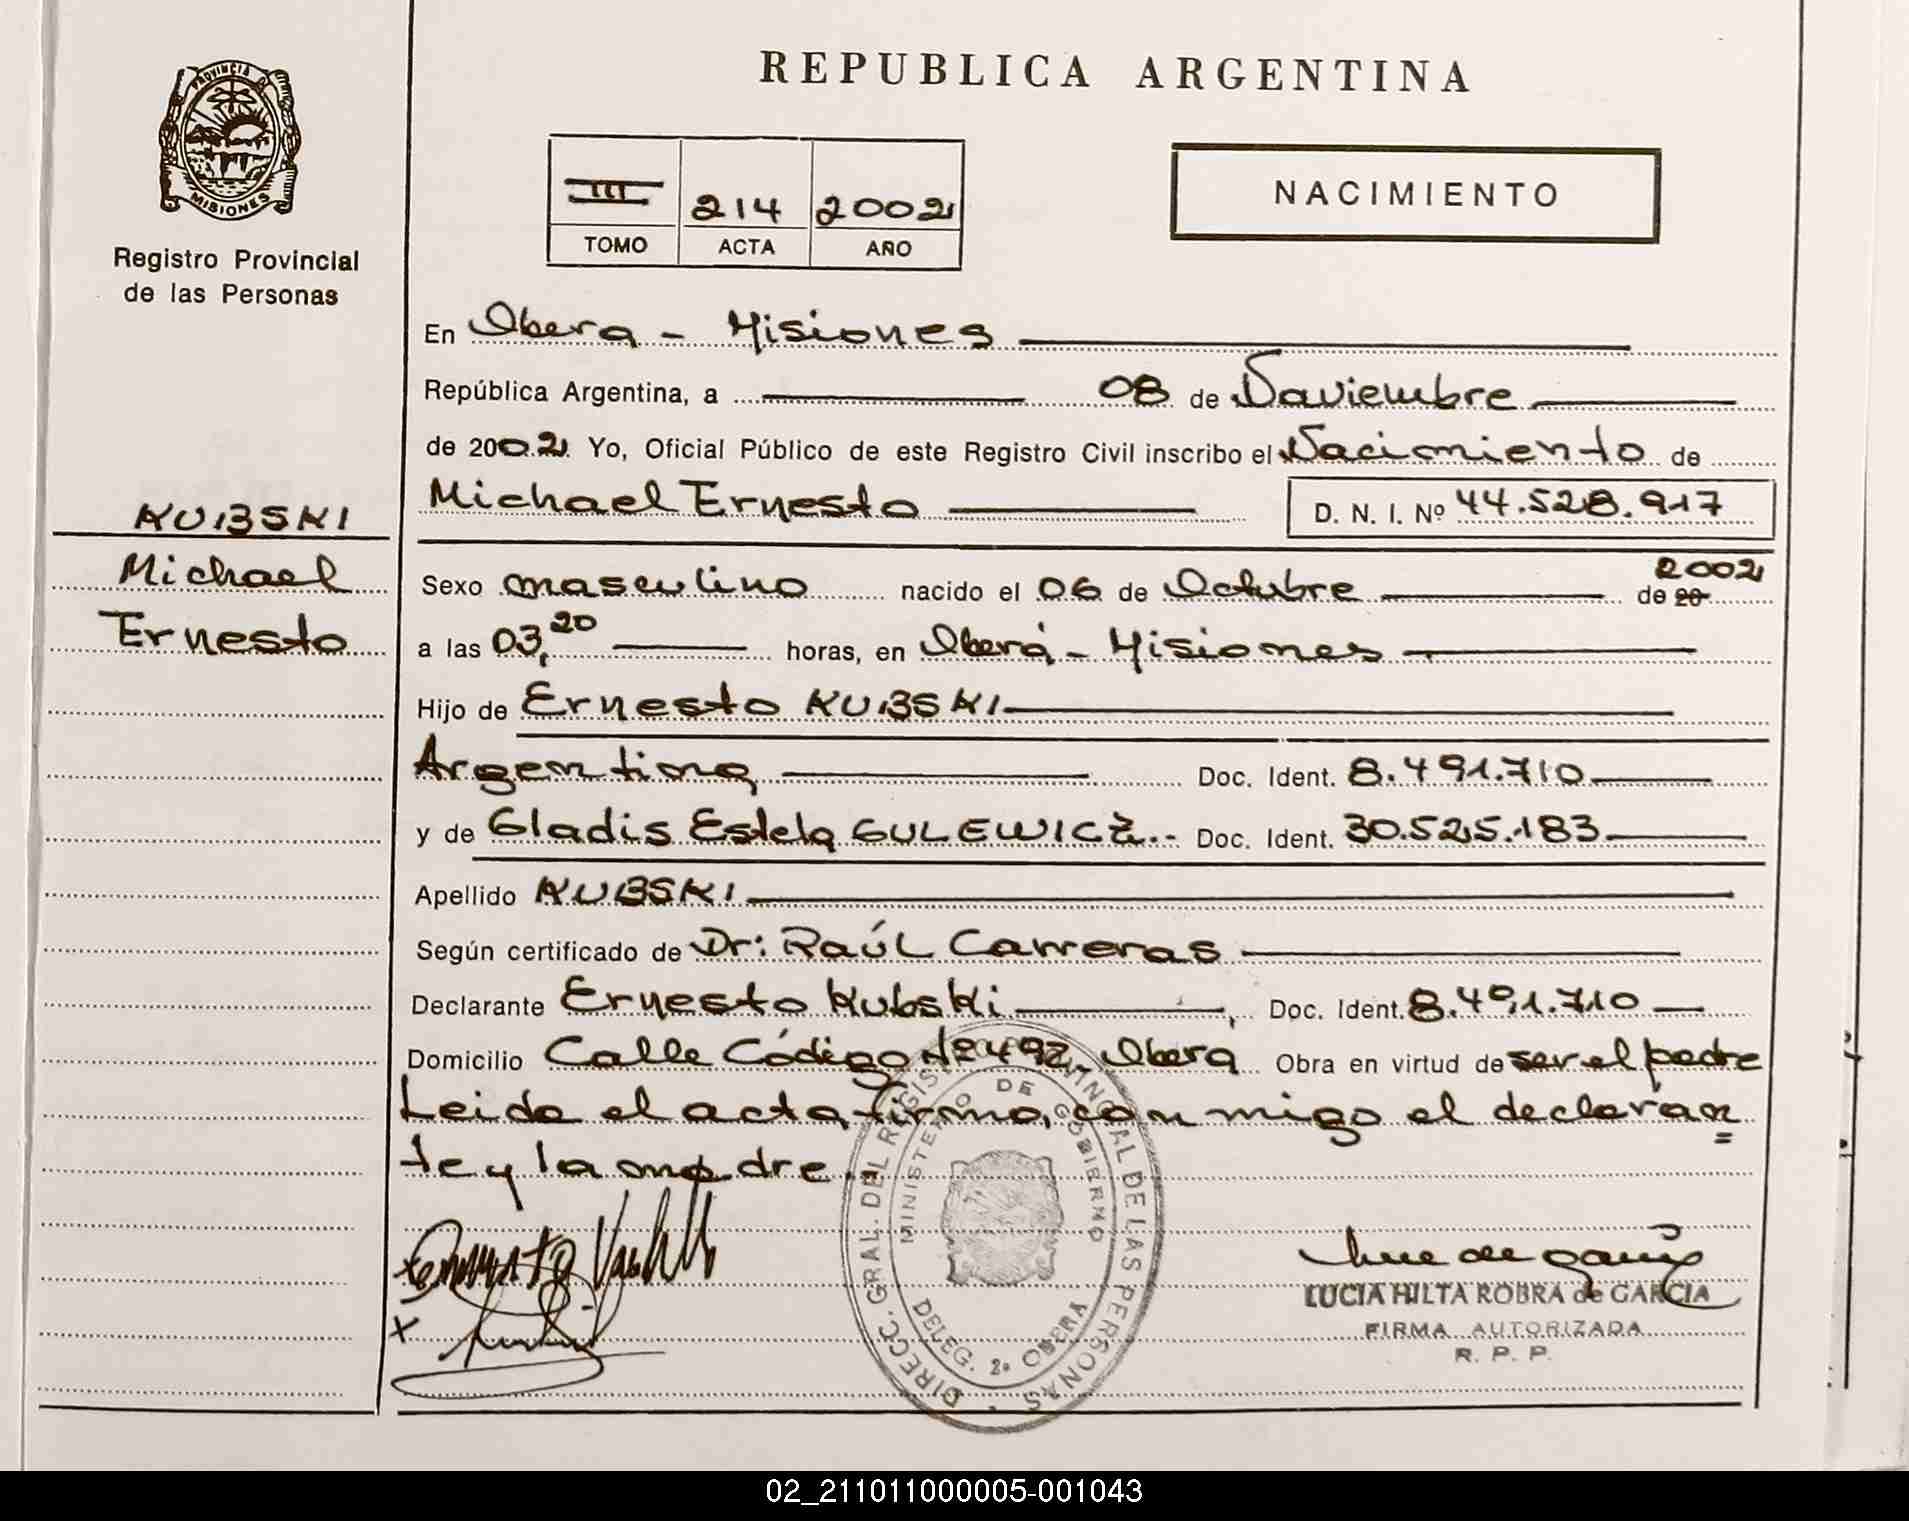 PROVINCIA DE
MISIONES
Registro Provincial
de las Personas
KUBSKI
Michael
Ernesto
REPUBLICA ARGENTINA
III 214 2002
TOMO ACTA AÑO
NACIMIENTO
En Obera - Misiones
República Argentina, a 08 de Noviembre
de 2002 Yo, Oficial Público de este Registro Civil inscribo el Nacimiento de
Michael Ernesto D. N. I. Nº 44.528.917
Sexo masculino nacido el 06 de Octubre de 20 2002
a las 03,20 horas, en Oberá - Misiones
Hijo de Ernesto KUBSKI
Argentino Doc. Ident. 8.491.710
y de Gladis Estela GULEWICZ.- Doc. Ident. 30.525.183
Apellido KUBSKI
Según certificado de Dr: Raúl Carreras
Declarante Ernesto Kubski, Doc. Ident. 8.491.710
Domicilio Calle Código Nº 492, Obera Obra en virtud de ser el padre
Leida el acta firma, con migo el declaran
te y la madre.
DIRECC. GRAL. DEL REGISTRO PROVINCIAL DE LAS PERSONAS
MINISTERIO DE GOBIERNO
DELEG. 2ª OBERA
LUCIA HILTA ROBRA de GARCIA
FIRMA AUTORIZADA
R. P. P.
02_211011000005-001043